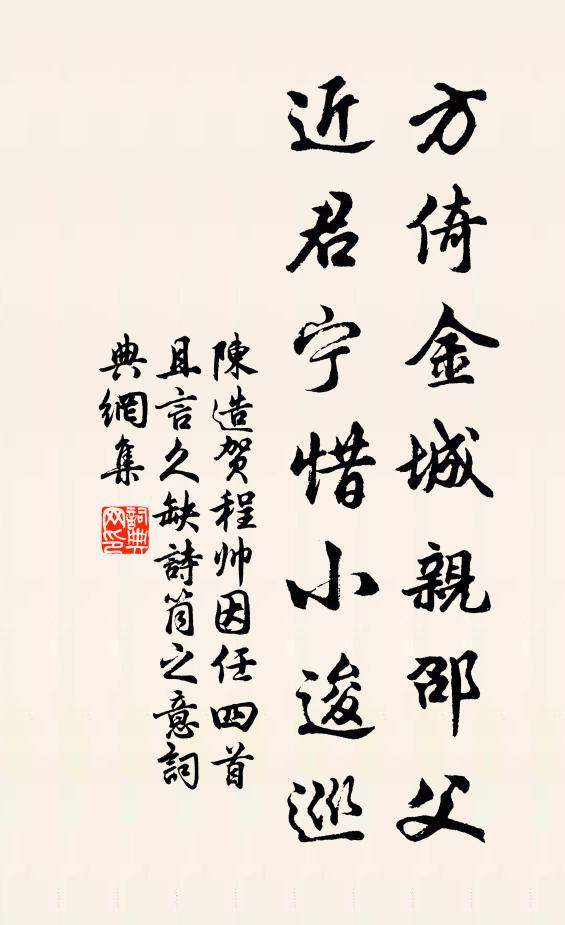 方倚金城親邵父
近君宁惜小逡巡
陳造賀程帅因任四首
且言久缺詩筒之意詞
典網集
詞典
网印